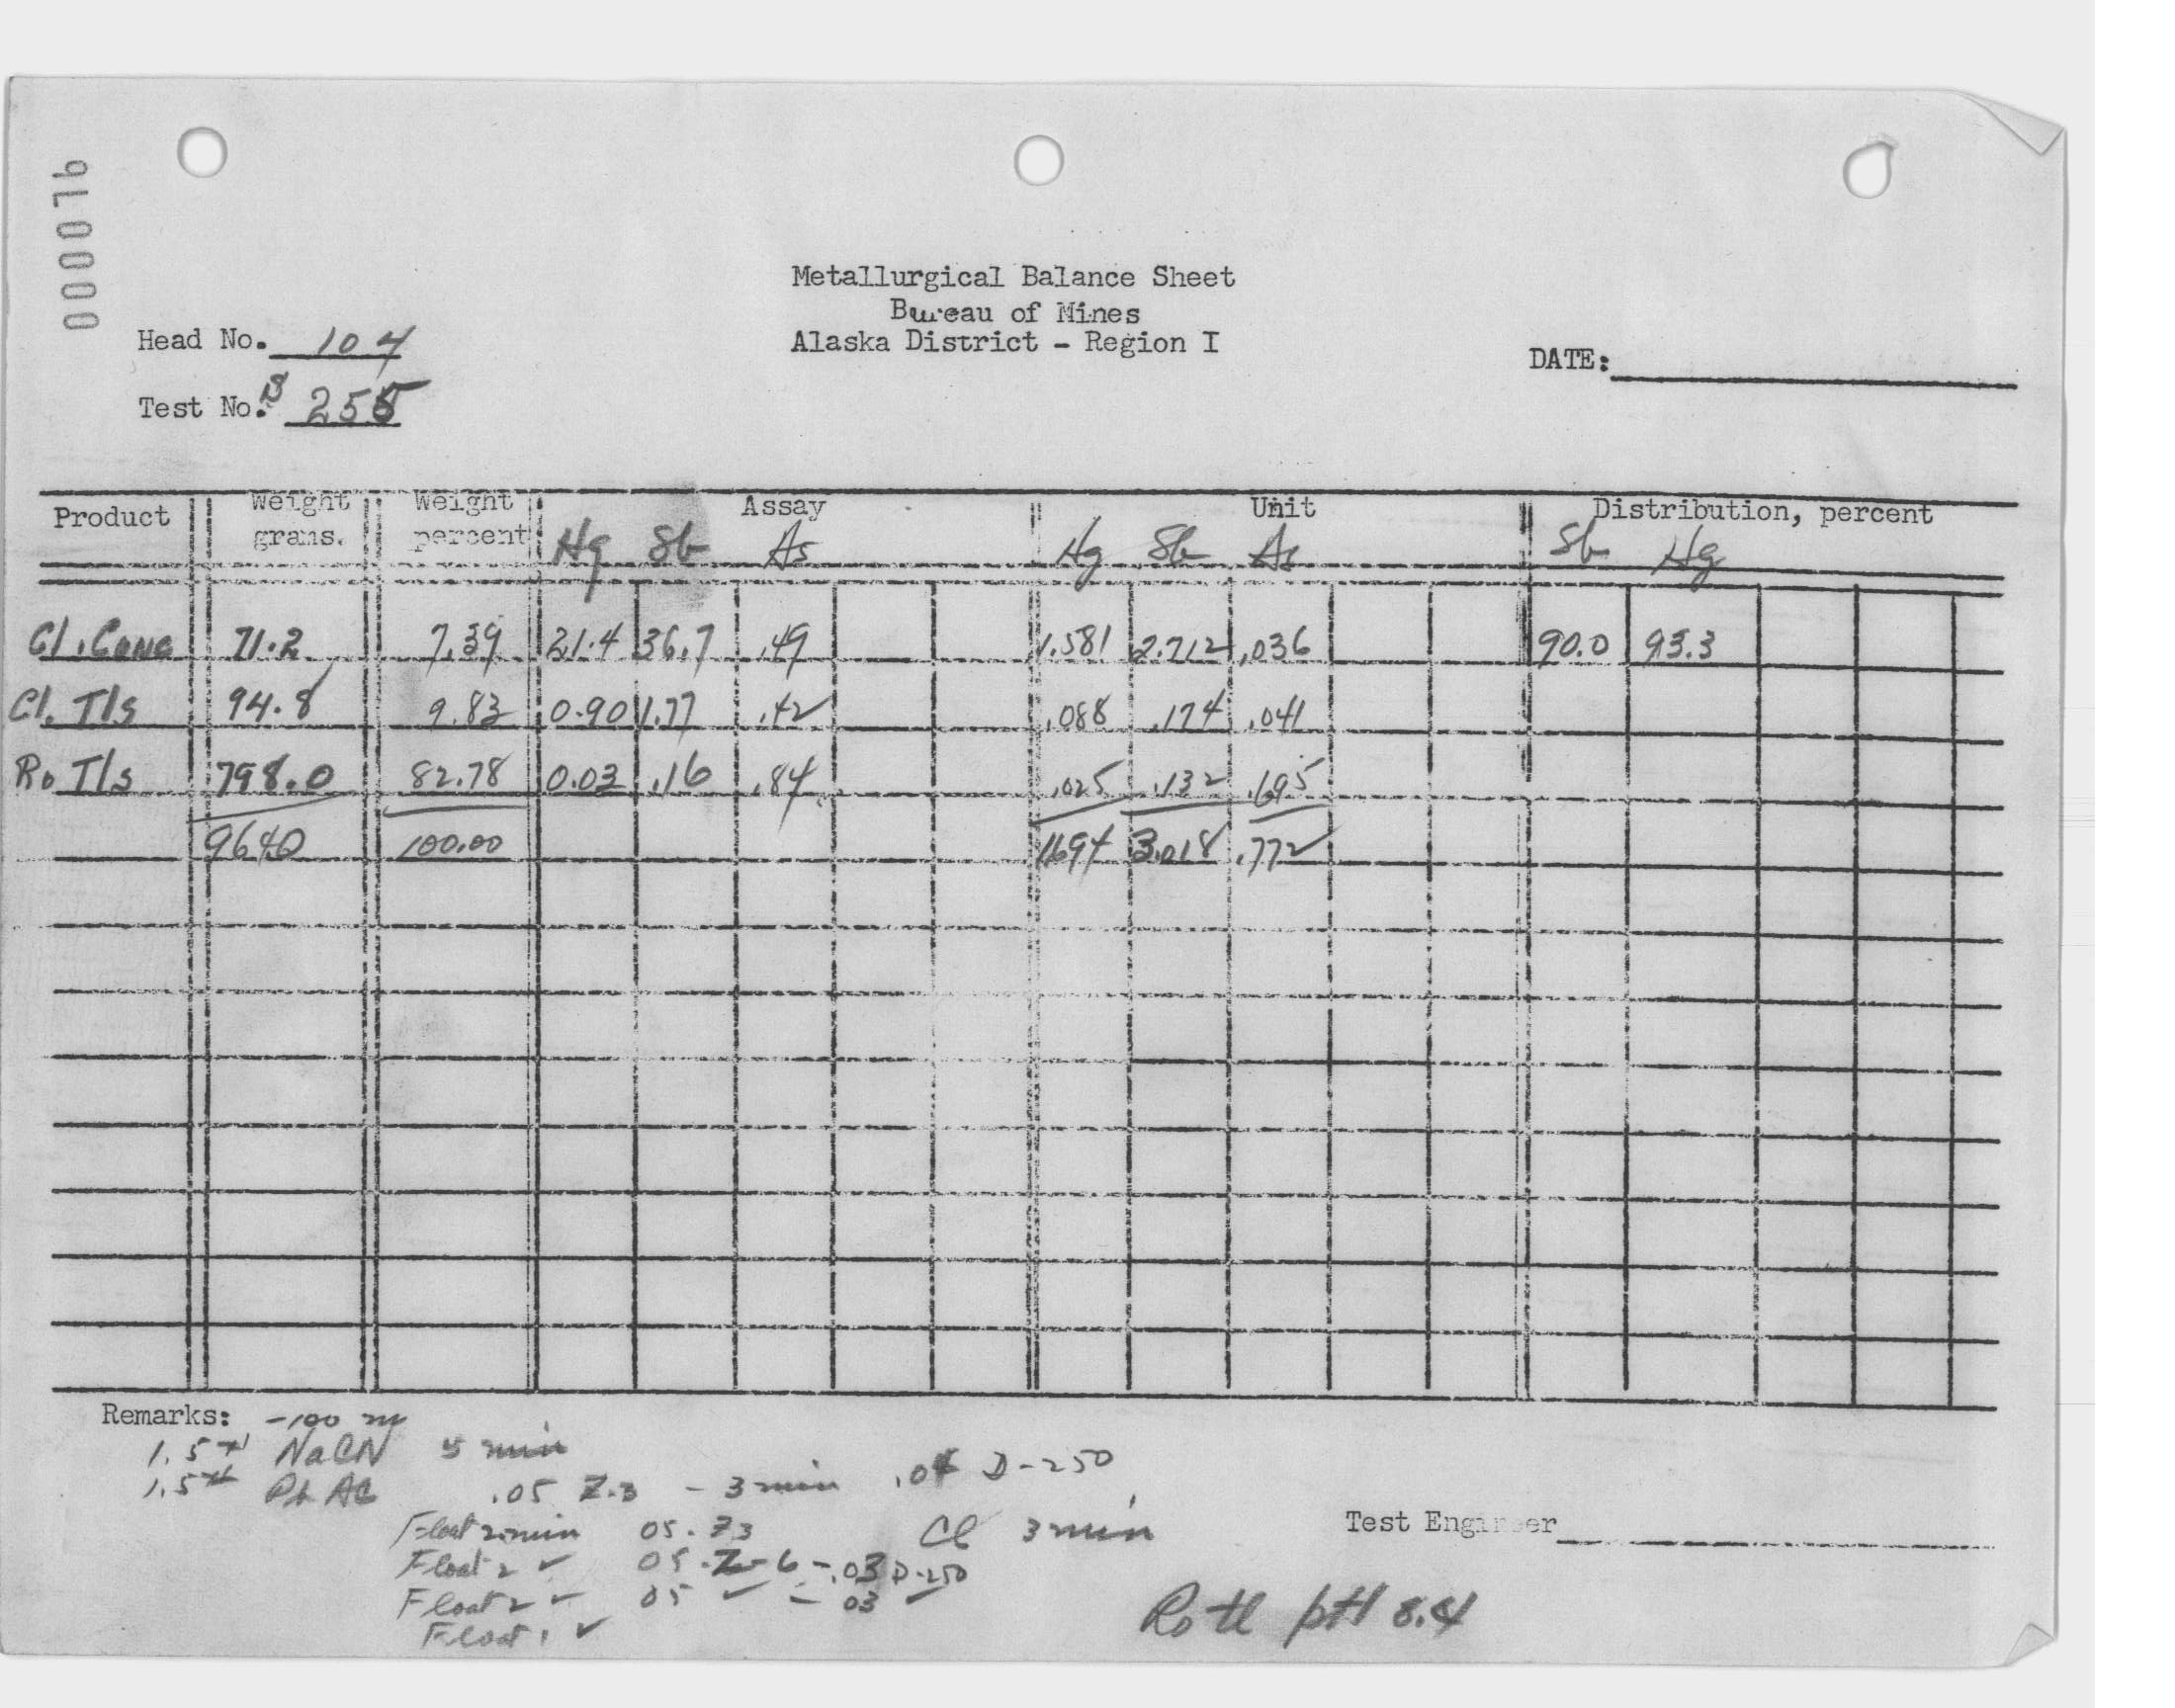 000016
Metallurgical Balance Sheet
Bureau of Mines
Alaska District - Region I
Head No. 104
DATE:
Test No. 255
Product Weight grams. Weight percent Assay Unit Distribution, percent
Hg Sb As Hg Sb As Sb Hg
Cl. Conc 71.2 7.39 21.4 36.7 .49 1.581 2.712 .036 90.0 93.3
Cl. Tls 94.8 9.83 0.90 1.77 .42 .088 .174 .041
Ro Tls 798.0 82.78 0.03 .16 .84 .025 .132 .695
964.0 100.00 1.694 3.018 .772
Remarks: -100 m
1.5# NaCN 5 min
1.5# Pb AC .05 Z.3 - 3 min .04 D-250
Float 2 min 05. Z3 Cl 3 min
Float 2 ✓ 05. Z-6 - .03 D-250
Float 2 ✓ 05 ✓ - 03 ✓
Float 1 ✓
Test Engineer
Ro tl pH 8.4